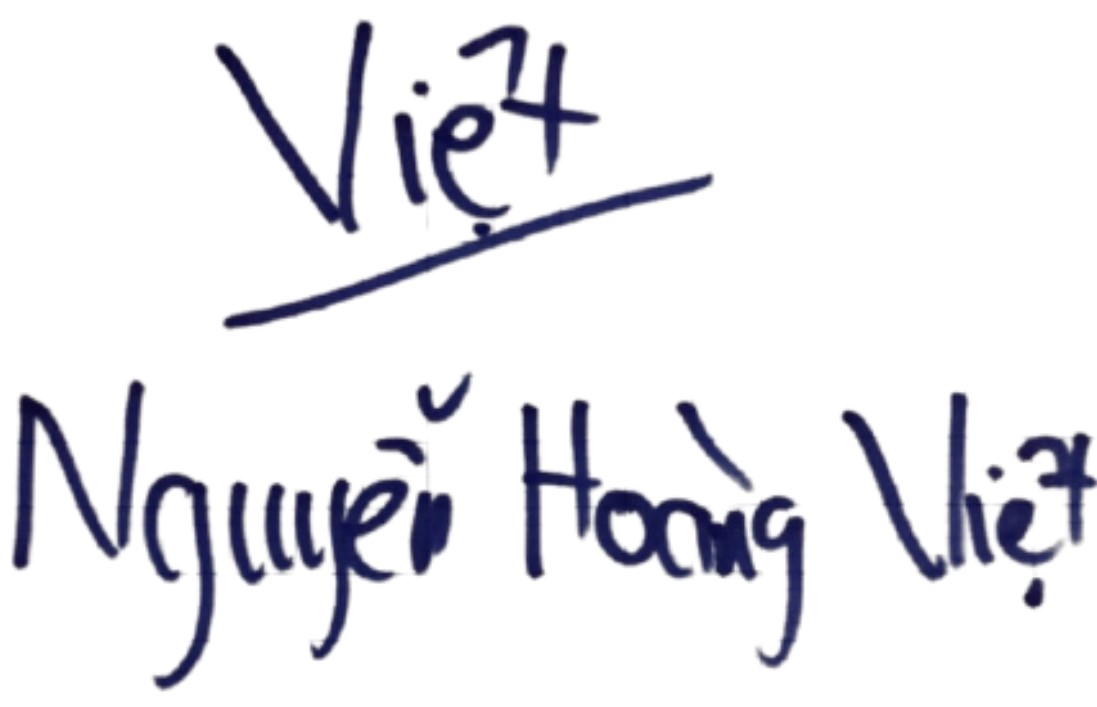 Việt
Nguyễn Hoàng Việt